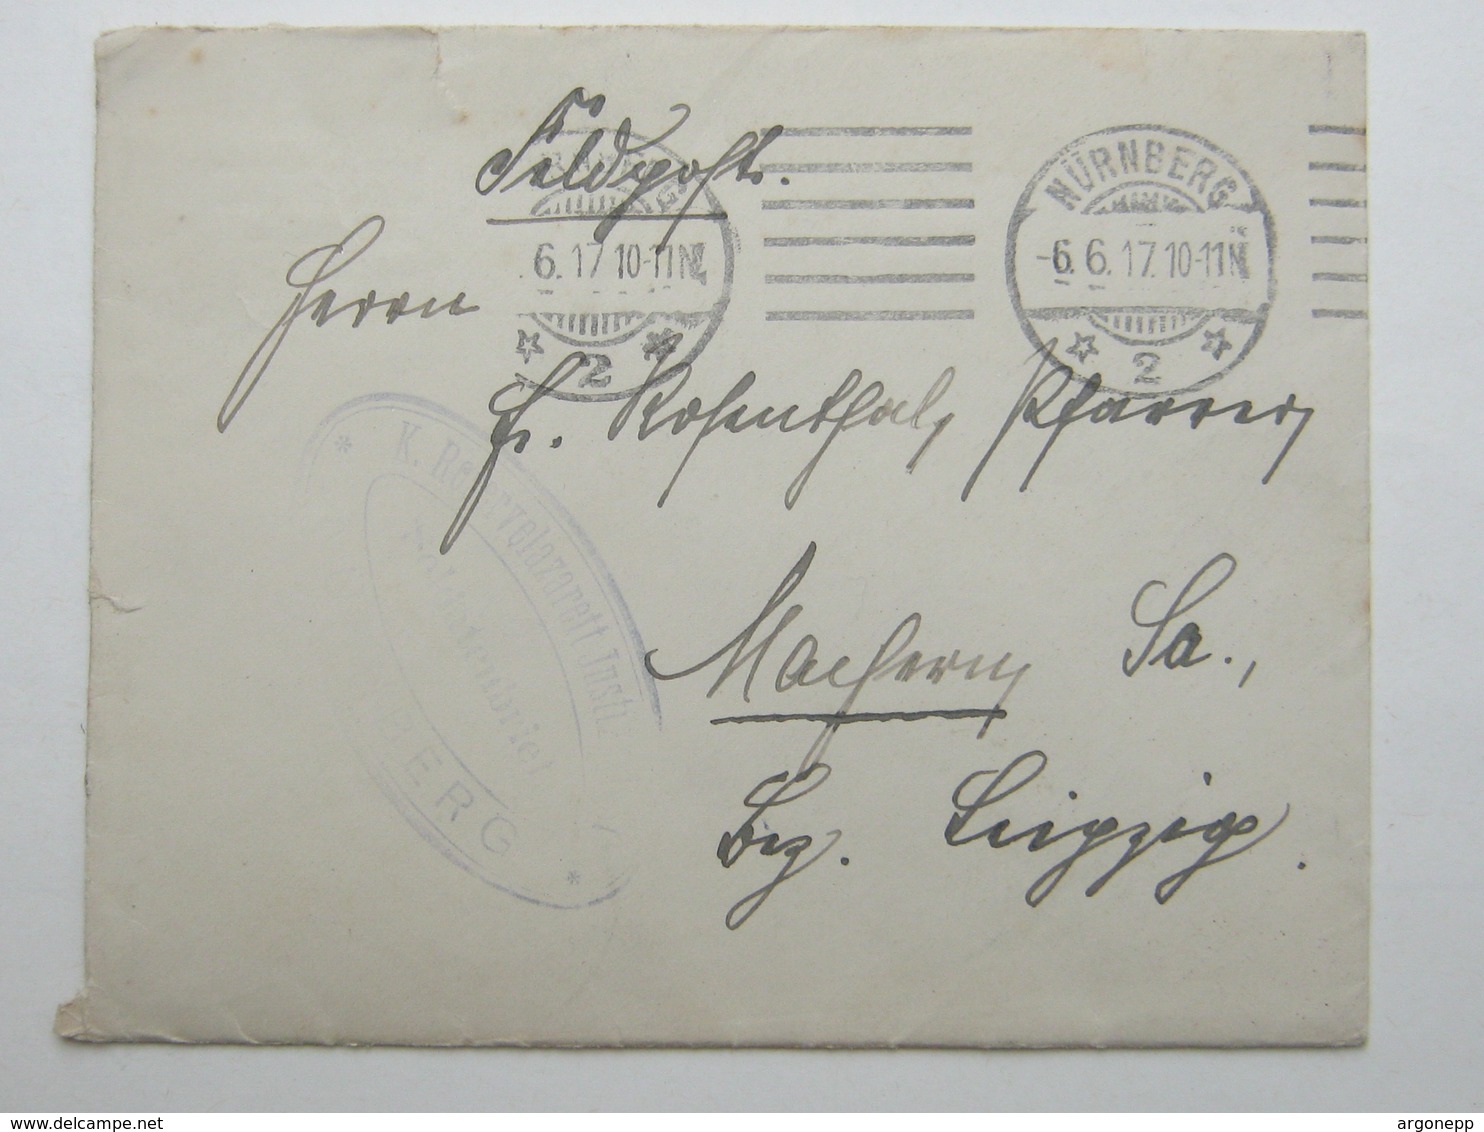 Feldpost.
6.17 10-11N
2
NÜRNBERG
-6.6.17.10-11N
2
Herrn
Fr. Rosenthal, Pfarrer,
K. Reservelazarett Instr.
BERG
Machern, Sa.,
Bez. Leipzig.
www.delcampe.net
argonepp